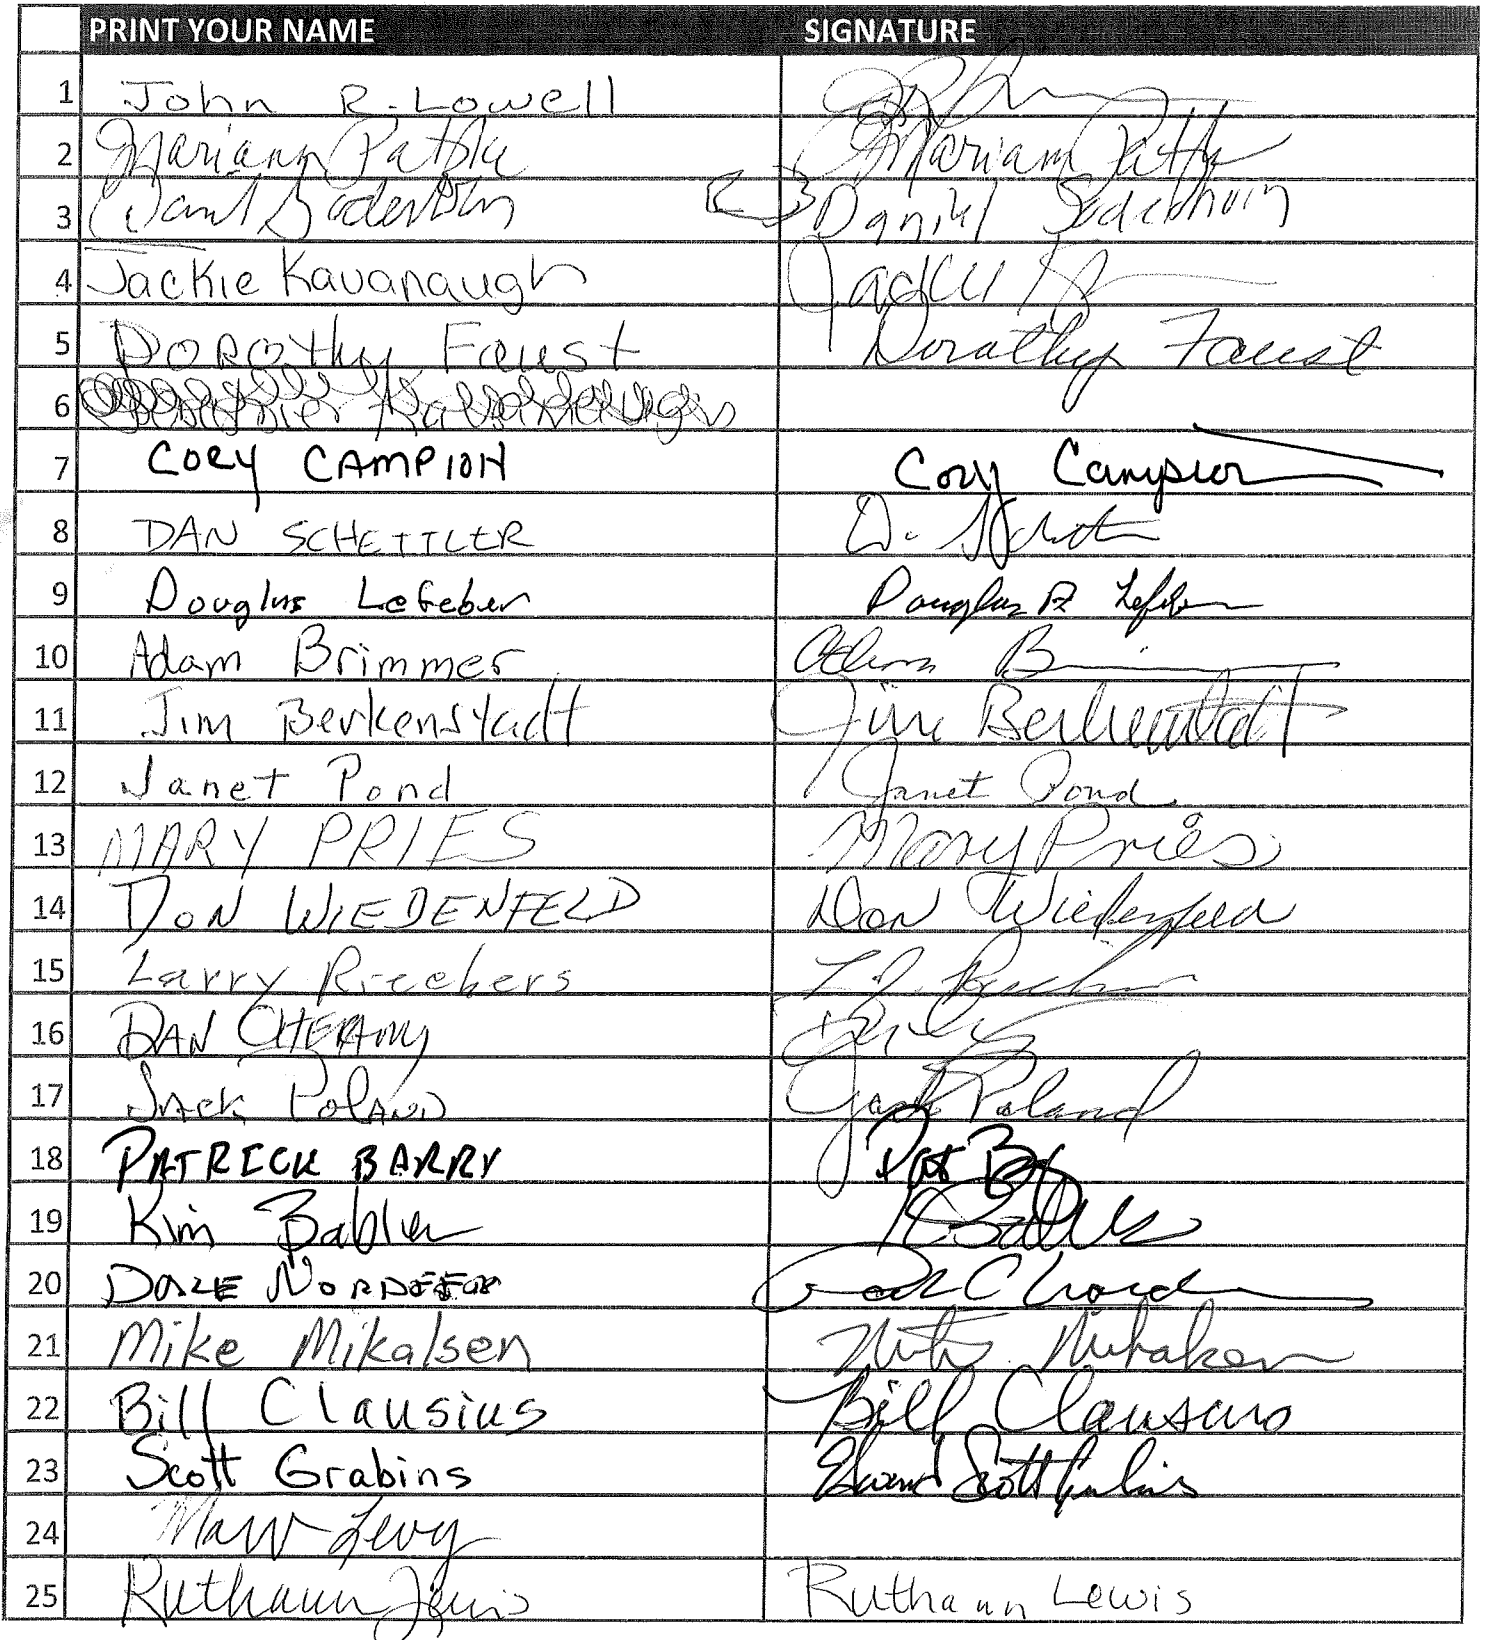 PRINT YOUR NAME SIGNATURE
1 John R. Lowell
2 Mariann Mariann
3 Daniel Soderholm Daniel Soderholm
4 Jackie Kavanaugh Jackie
5 Dorothy Faust Dorothy Faust
6 Kavanaugh
7 CORY CAMPION Cory Campion
8 DAN SCHETTLER D.
9 Douglas Lefeber Douglas R Lefeber
10 Adam Brimmer Adam
11 Jim Berkenstadt Jim Berkenstadt
12 Janet Pond Janet Pond
13 MARY PRIES Mary Pries
14 DON WIEDENFELD Don Wiedenfeld
15 Larry Riechers L.J. Riechers
16 DAN
17 JACK POLAND Jack Poland
18 PATRICK BARRY Pat
19 Kim Babler K Babler
20 DALE
21 Mike Mikalsen Mike Mikalsen
22 Bill Clausius Bill Clausius
23 Scott Grabins Edward Scott Grabins
24 Levy
25 Ruthann Lewis Ruthann Lewis